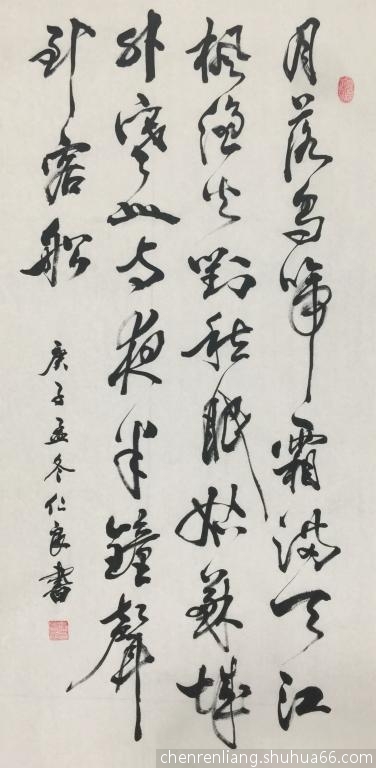 月落烏啼霜滿天江
楓漁火對愁眠姑蘇城
外寒山寺夜半鐘聲
到客船
庚子孟冬仁良書
chenrenliang.shuhua66.com